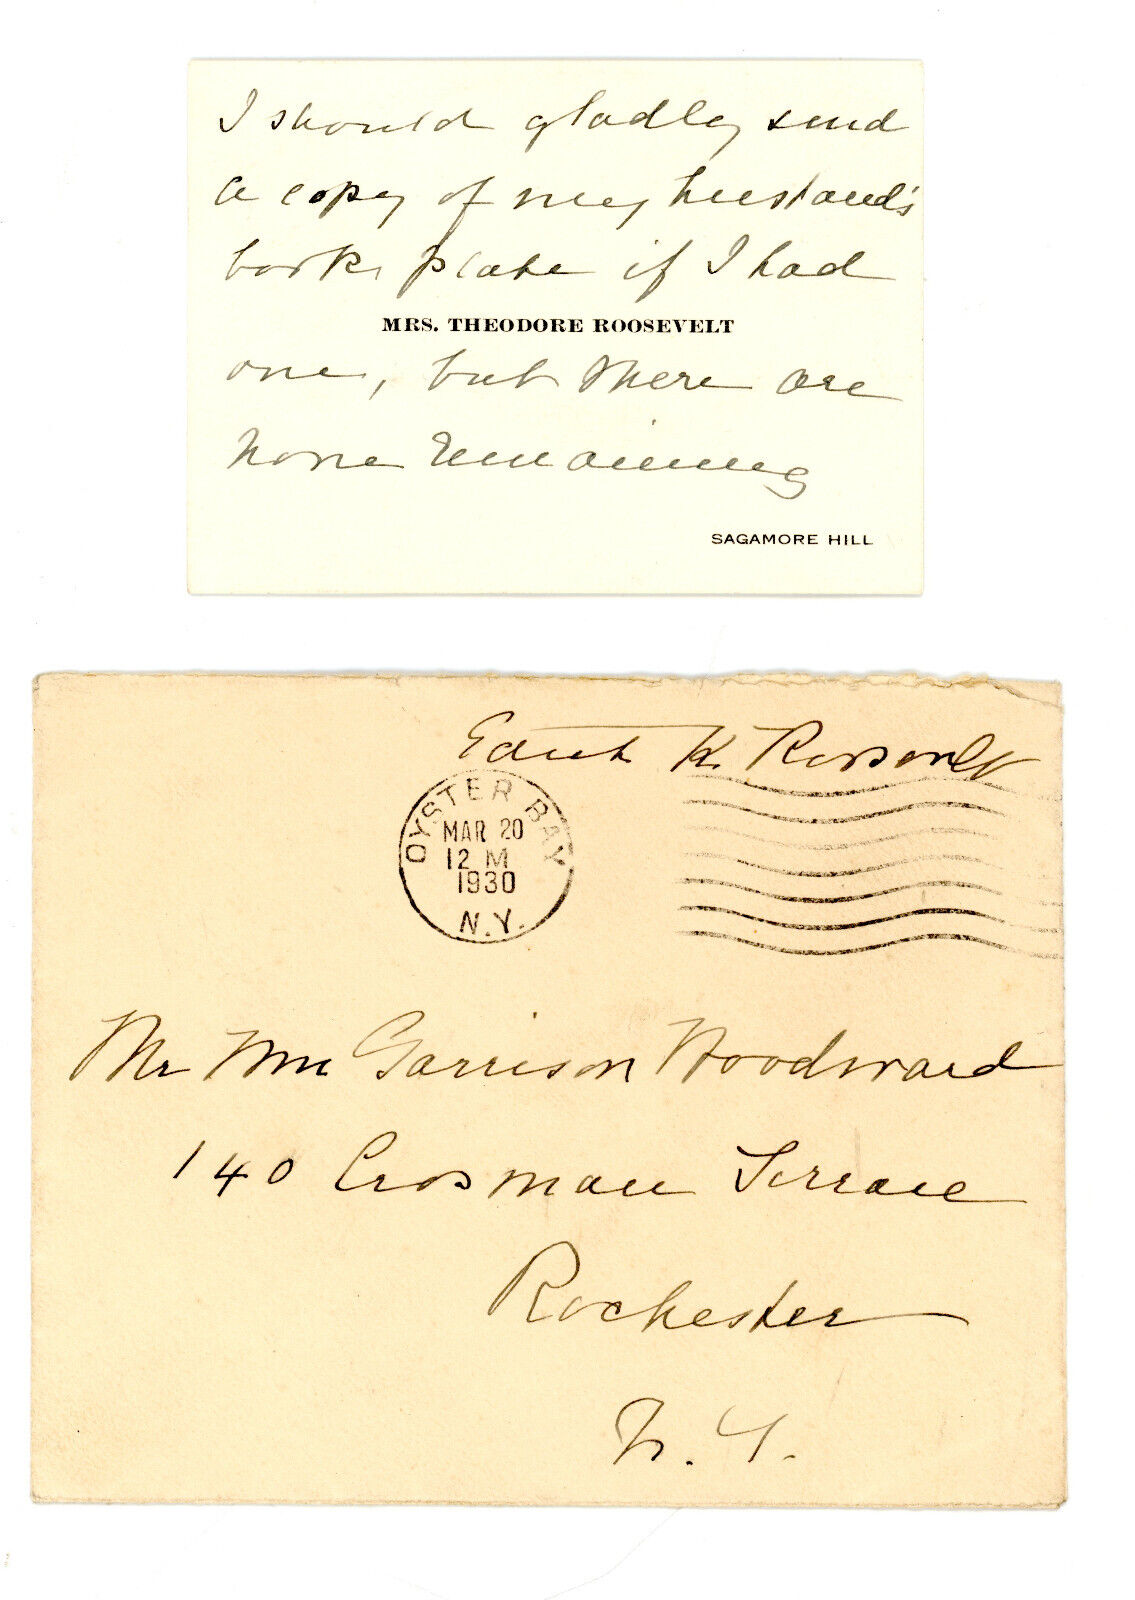 I should gladly send
a copy of my husband's
book plate if I had
MRS. THEODORE ROOSEVELT
one, but there are
none remaining
SAGAMORE HILL
Edith K. Roosevelt
OYSTER BAY
MAR 20
12 M
1930
N.Y.
Mr Wm Garrison Woodward
140 Crosman Terrace
Rochester
N.Y.